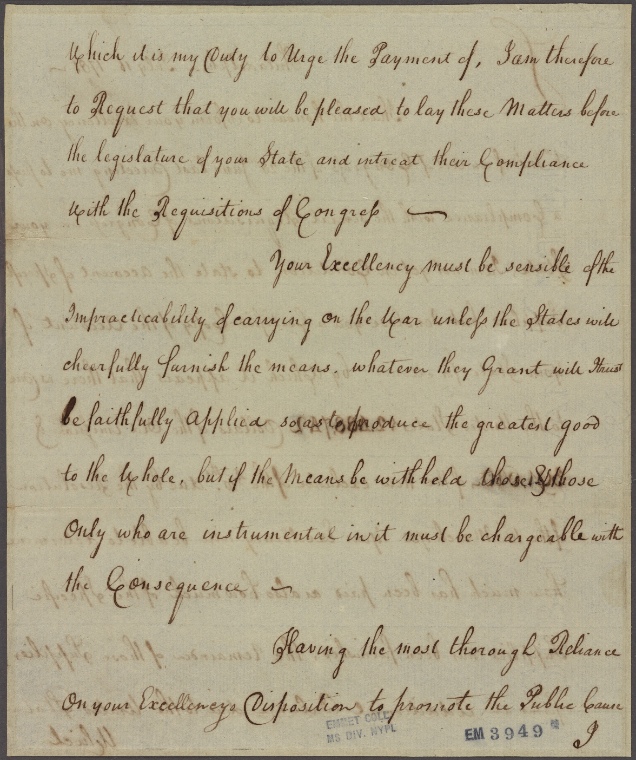 Which it is my Duty to Urge the Payment of, I am therefore
to Request that you will be pleased to lay these Matters before
the legislature of your State and intreat their Compliance
With the Requisitions of Congress —
Your Excellency must be sensible of the
Impracticability of carrying on the War unless the States will
cheerfully furnish the means. whatever they Grant will I trust
be faithfully applied so as to produce the greatest good
to the Whole, but if the Means be withheld those & those
Only who are instrumental in it must be chargeable with
the Consequence —
Having the most thorough Reliance
On your Excellencys Disposition to promote the Public Cause
I
EMMET COLL.
MS DIV. NYPL
EM 3949